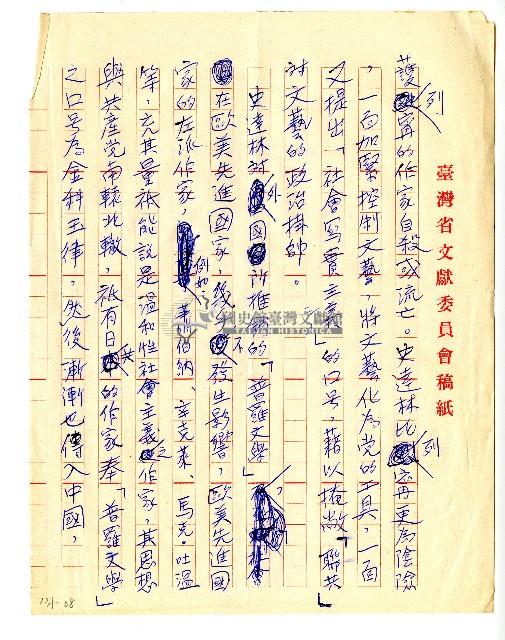 臺灣省文獻委員會稿紙
護列寧的作家自殺或流亡。史達林比列寧更為陰險
，一面加緊控制文藝，將文藝化為党的工具，一面
又提出「社會寫實主義」的口号，藉以掩敝「聯共」
对文藝的政治掛帥。
史達林对外國所推動的「普羅文學」，
在歐美先進國家，幾乎不發生影響，歐美先進國
家的左派作家，例如蕭伯納、辛克萊、馬克·吐溫
等，充其量衹能說是溫和性社會主義之作家，其思想
與共產党南轅北轍，衹有日共的作家奉「普羅文學」
之口号為金科玉律，然後漸漸也傳入中國，
國史館臺灣文獻館
TAIWAN HISTORICA
131-08